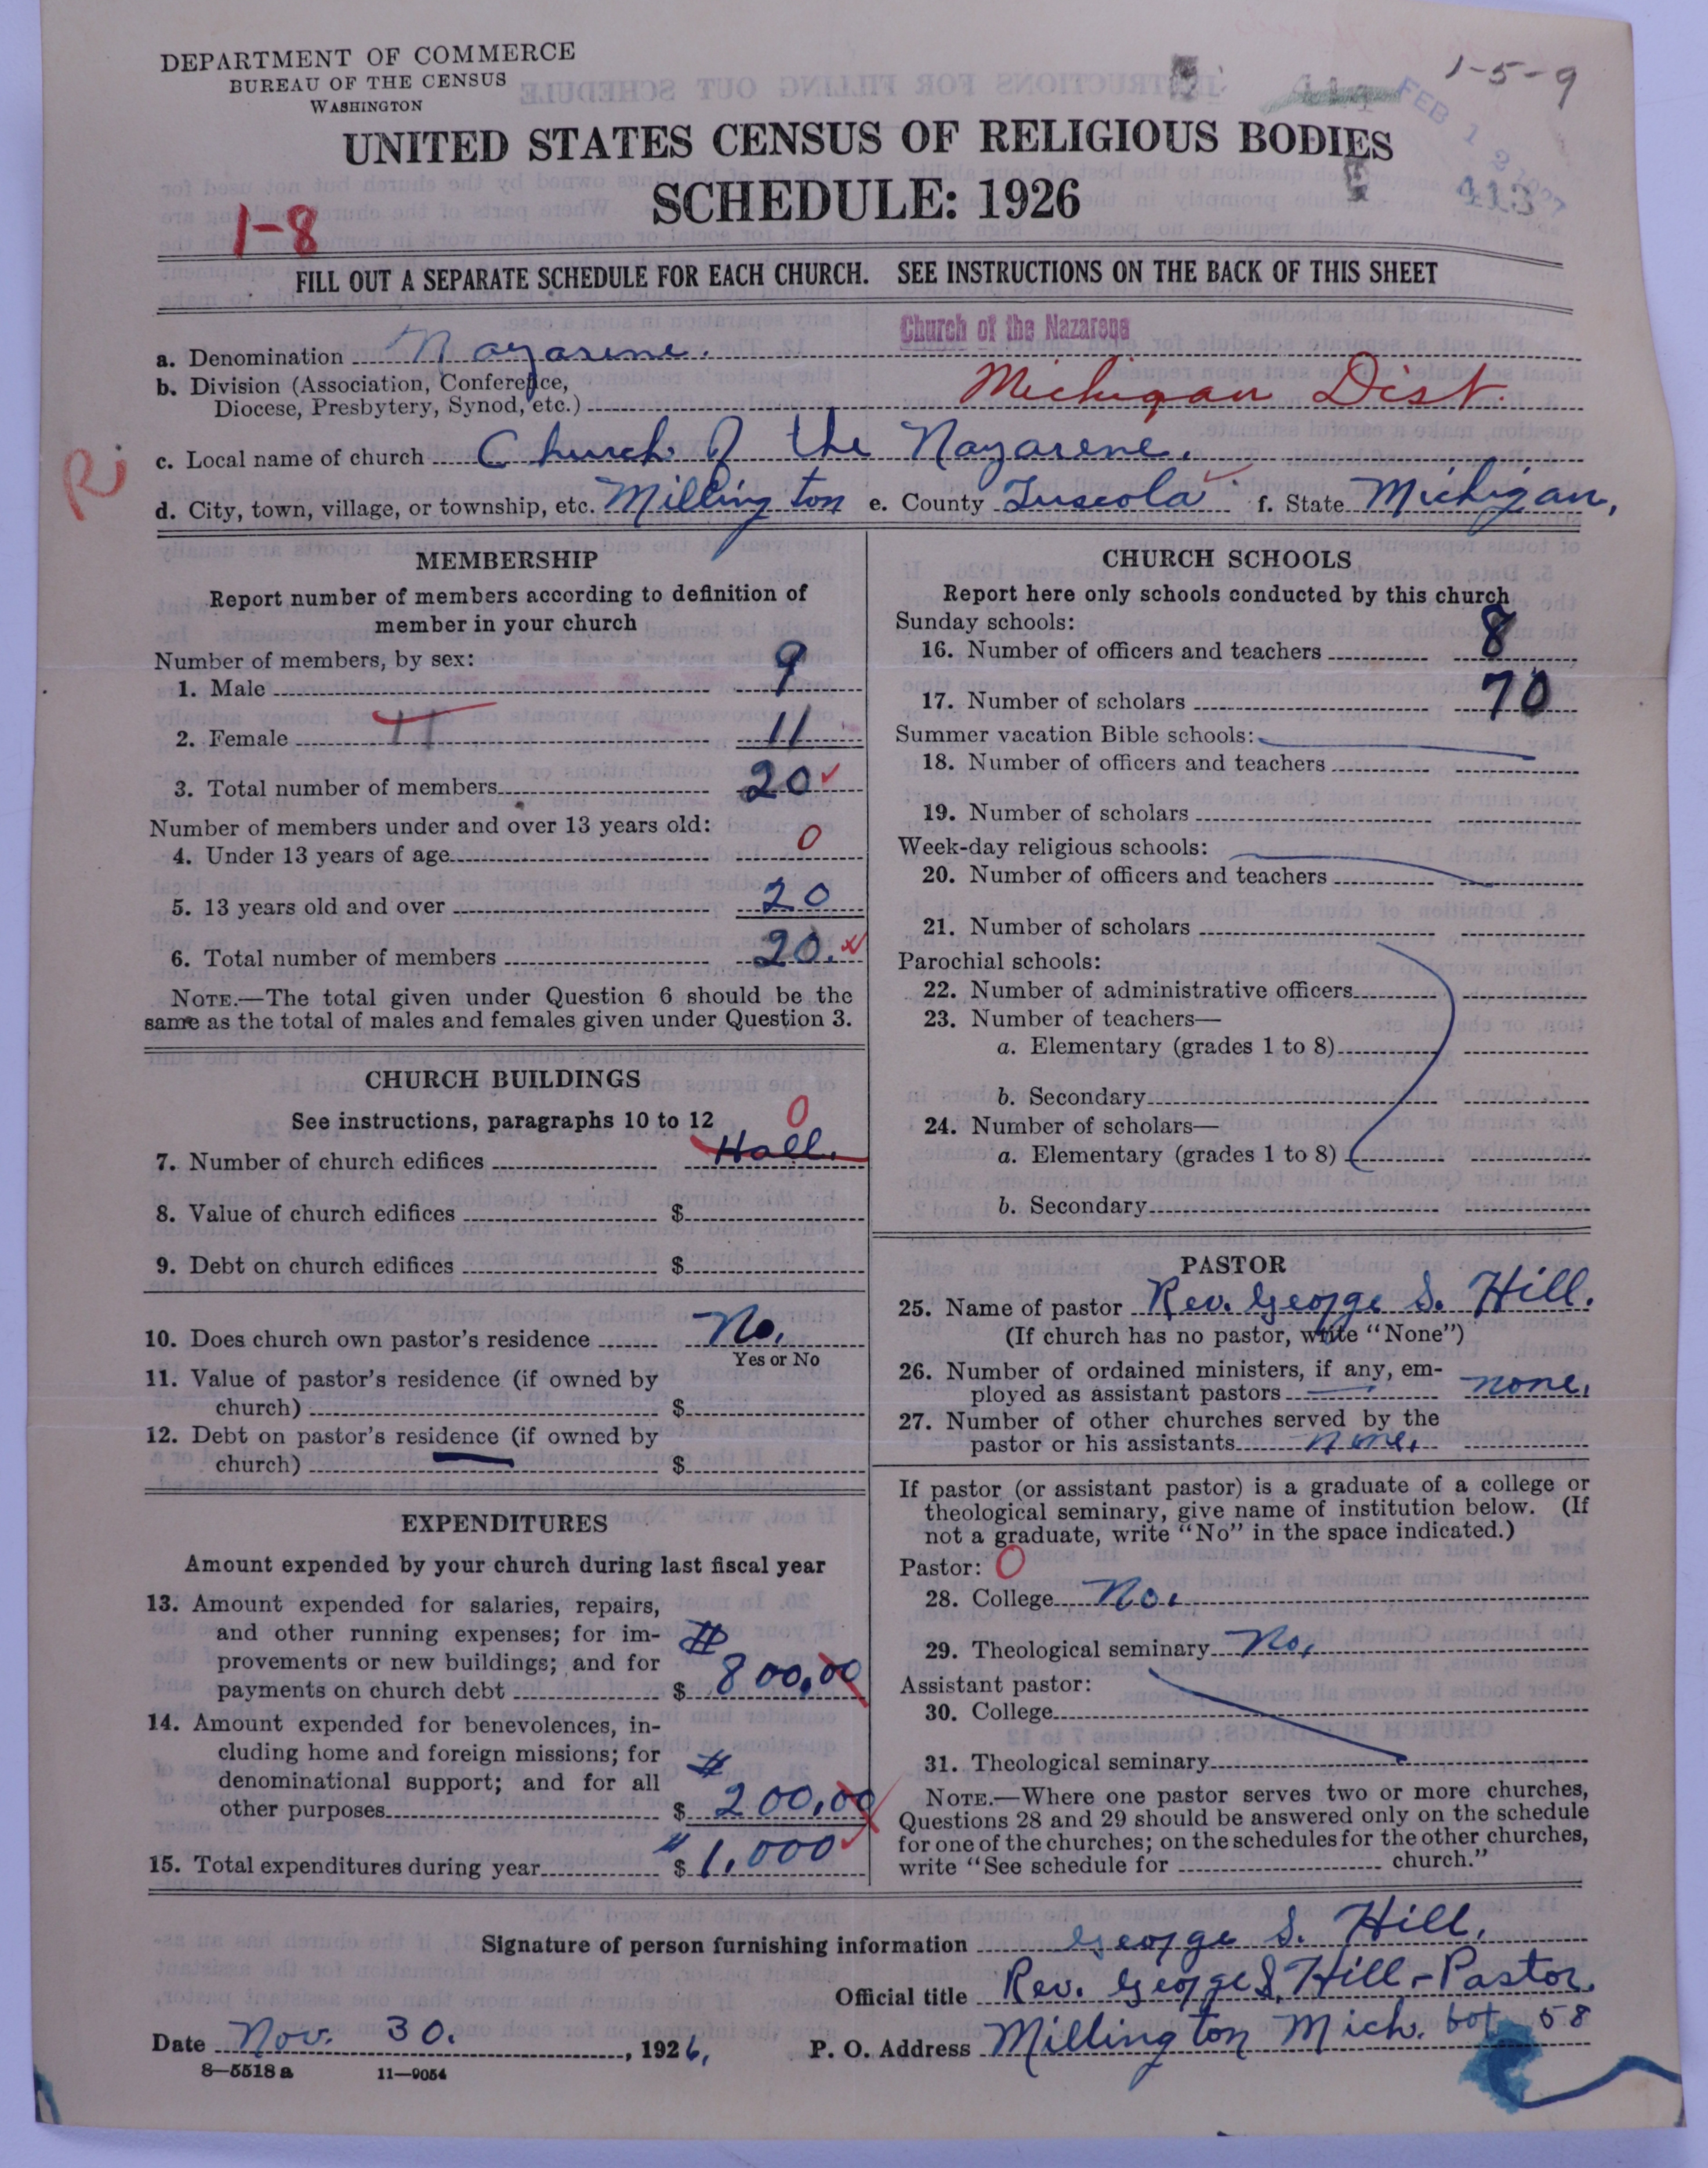 DEPARTMENT OF COMMERCE
BUREAU OF THE CENSUS
WASHINGTON
1-5-9
FEB 12 1927
UNITED STATES CENSUS OF RELIGIOUS BODIES
SCHEDULE: 1926
413
1-8
FILL OUT A SEPARATE SCHEDULE FOR EACH CHURCH. SEE INSTRUCTIONS ON THE BACK OF THIS SHEET
Church of the Nazarene
a. Denomination Nazarene.
b. Division (Association, Conference,
Diocese, Presbytery, Synod, etc.) Michigan Dist.
Ri
c. Local name of church Church of the Nazarene.
d. City, town, village, or township, etc. Millington e. County Tuscola f. State Michigan,
MEMBERSHIP
Report number of members according to definition of
member in your church
Number of members, by sex:
1. Male 9
2. Female 11 11
3. Total number of members 20
Number of members under and over 13 years old:
4. Under 13 years of age 0
5. 13 years old and over 20
6. Total number of members 20.
NOTE.—The total given under Question 6 should be the
same as the total of males and females given under Question 3.
CHURCH BUILDINGS
See instructions, paragraphs 10 to 12 0
7. Number of church edifices Hall.
8. Value of church edifices $
9. Debt on church edifices $
10. Does church own pastor's residence No.
Yes or No
11. Value of pastor's residence (if owned by
church) $
12. Debt on pastor's residence (if owned by
church) $
EXPENDITURES
Amount expended by your church during last fiscal year
13. Amount expended for salaries, repairs,
and other running expenses; for im-
provements or new buildings; and for
payments on church debt $ 800.00
14. Amount expended for benevolences, in-
cluding home and foreign missions; for
denominational support; and for all
other purposes $ 200.00
15. Total expenditures during year $ 1,000
CHURCH SCHOOLS
Report here only schools conducted by this church
Sunday schools:
16. Number of officers and teachers 8
17. Number of scholars 70
Summer vacation Bible schools:
18. Number of officers and teachers
19. Number of scholars
Week-day religious schools:
20. Number of officers and teachers
21. Number of scholars
Parochial schools:
22. Number of administrative officers
23. Number of teachers—
a. Elementary (grades 1 to 8)
b. Secondary
24. Number of scholars—
a. Elementary (grades 1 to 8)
b. Secondary
PASTOR
25. Name of pastor Rev. George S. Hill.
(If church has no pastor, write "None")
26. Number of ordained ministers, if any, em-
ployed as assistant pastors none.
27. Number of other churches served by the
pastor or his assistants none.
If pastor (or assistant pastor) is a graduate of a college or
theological seminary, give name of institution below. (If
not a graduate, write "No" in the space indicated.)
Pastor: 0
28. College No.
29. Theological seminary No.
Assistant pastor:
30. College
31. Theological seminary
NOTE.—Where one pastor serves two or more churches,
Questions 28 and 29 should be answered only on the schedule
for one of the churches; on the schedules for the other churches,
write "See schedule for church."
Signature of person furnishing information George S. Hill.
Official title Rev. George S. Hill-Pastor.
Date Nov. 30. , 1926, P. O. Address Millington Mich. bot 58
8—5518 a 11—9054